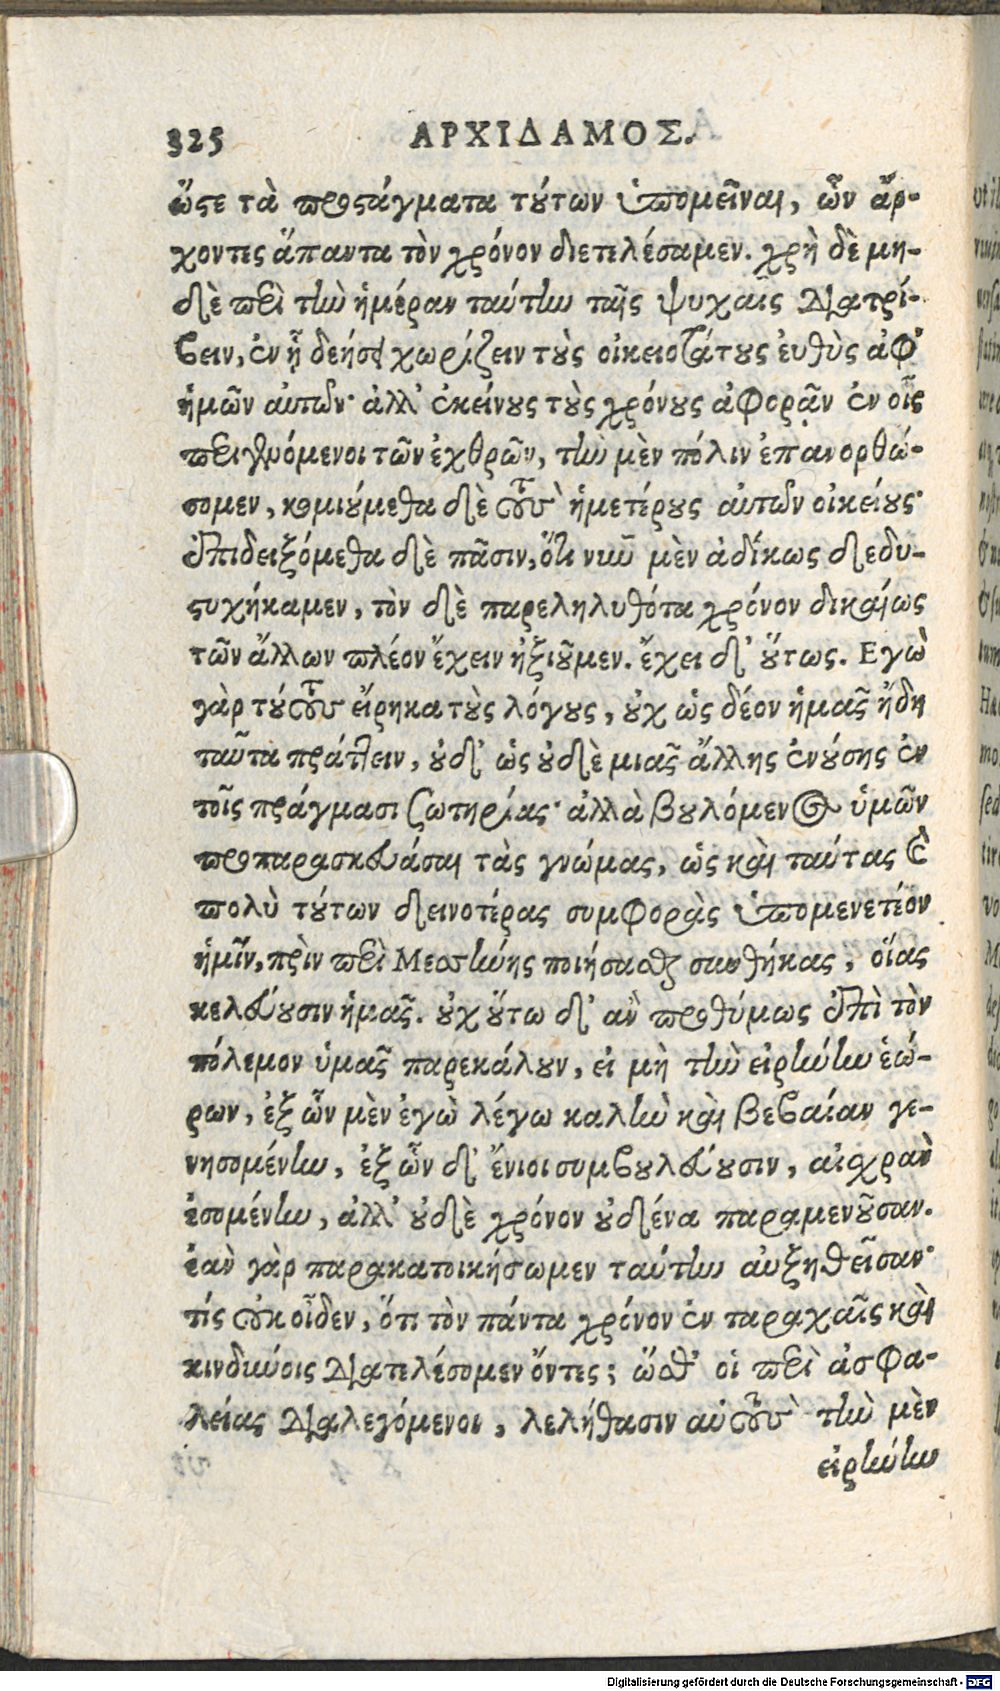 325 ΑΡΧΙΔΑΜΟΣ.
ὥστε τὰ προστάγματα τούτων ὑπομεῖναι, ὧν ἄρ-
χοντες ἅπαντα τὸν χρόνον διετελέσαμεν. χρὴ δὲ μη-
δὲ περὶ τὴν ἡμέραν ταύτην ταῖς ψυχαῖς διατρί-
βειν, ἐν ᾗ δεήσει χωρίζειν τοὺς οἰκειοτάτους εὐθὺς ἀφ'
ἡμῶν αὐτῶν· ἀλλ' ἐκείνους τοὺς χρόνους ἀφορᾶν ἐν οἷς
περιγενόμενοι τῶν ἐχθρῶν, τὴν μὲν πόλιν ἐπανορθώ-
σομεν, κομιούμεθα δὲ τοὺς ἡμετέρους αὐτῶν οἰκείους·
ἐπιδειξόμεθα δὲ πᾶσιν, ὅτι νῦν μὲν ἀδίκως δεδυ-
στυχήκαμεν, τὸν δὲ παρεληλυθότα χρόνον δικαίως
τῶν ἄλλων πλέον ἔχειν ἠξιοῦμεν. ἔχει δ' οὕτως. Εγὼ
γὰρ τούτους εἴρηκα τοὺς λόγους, οὐχ ὡς δέον ἡμᾶς ἤδη
ταῦτα πράττειν, οὐδ' ὡς οὐδὲ μιᾶς ἄλλης ἐνούσης ἐν
τοῖς πράγμασι σωτηρίας· ἀλλὰ βουλόμενος ὑμῶν
προπαρασκευάσαι τὰς γνώμας, ὡς καὶ ταύτας καὶ
πολὺ τούτων δεινοτέρας συμφορὰς ὑπομενετέον
ἡμῖν, πρὶν περὶ Μεσσήνης ποιήσασθαι συνθήκας, οἵας
κελεύουσιν ἡμᾶς. οὐχ οὕτω δ' ἂν προθύμως ἐπὶ τὸν
πόλεμον ὑμᾶς παρεκάλουν, εἰ μὴ τὴν εἰρήνην ἑώ-
ρων, ἐξ ὧν μὲν ἐγὼ λέγω καλὴν καὶ βεβαίαν γε-
νησομένην, ἐξ ὧν δ' ἔνιοι συμβουλεύουσιν, αἰσχρὰν
ἐσομένην, ἀλλ' οὐδὲ χρόνον οὐδένα παραμενοῦσαν.
ἐὰν γὰρ παρακατοικήσωμεν ταύτην αὐξηθεῖσαν·
τίς οὐκ οἶδεν, ὅτι τὸν πάντα χρόνον ἐν ταραχαῖς καὶ
κινδύνοις διατελέσομεν ὄντες; ὥσθ' οἱ περὶ ἀσφα-
λείας διαλεγόμενοι, λελήθασιν αὑτοὺς τὴν μὲν
εἰρήνην
Digitalisierung gefördert durch die Deutsche Forschungsgemeinschaft - DFG